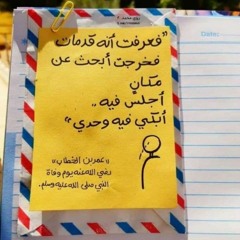 "فعرفت أنه قد مات
فخرجت أبحث عن
مكانٍ
أجلس فيه
أبكي فيه وحدي"
«عمر بن الخطاب»
رضي الله عنه يوم وفاة
النبي صلى الله عليه وسلم.
Date: